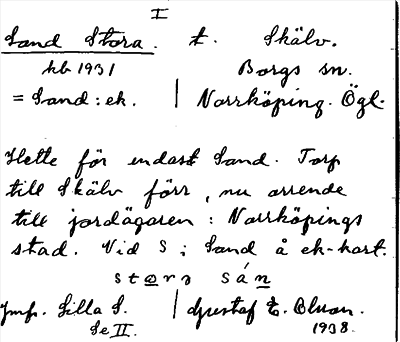 I
Sand Stora. t. Skälv.
kb 1931 Borgs sn.
= Sand : ek. | Norrköping. Ögl.
Hette för endast Sand. Torp
till Skälv förr, nu arrende
till jordägaren : Norrköpings
stad. Vid S ; Sand å ek-kart.
stɷrɔ sán
Jmf. Lilla S. | Gustaf E. Oluan.
Se II. 1938.